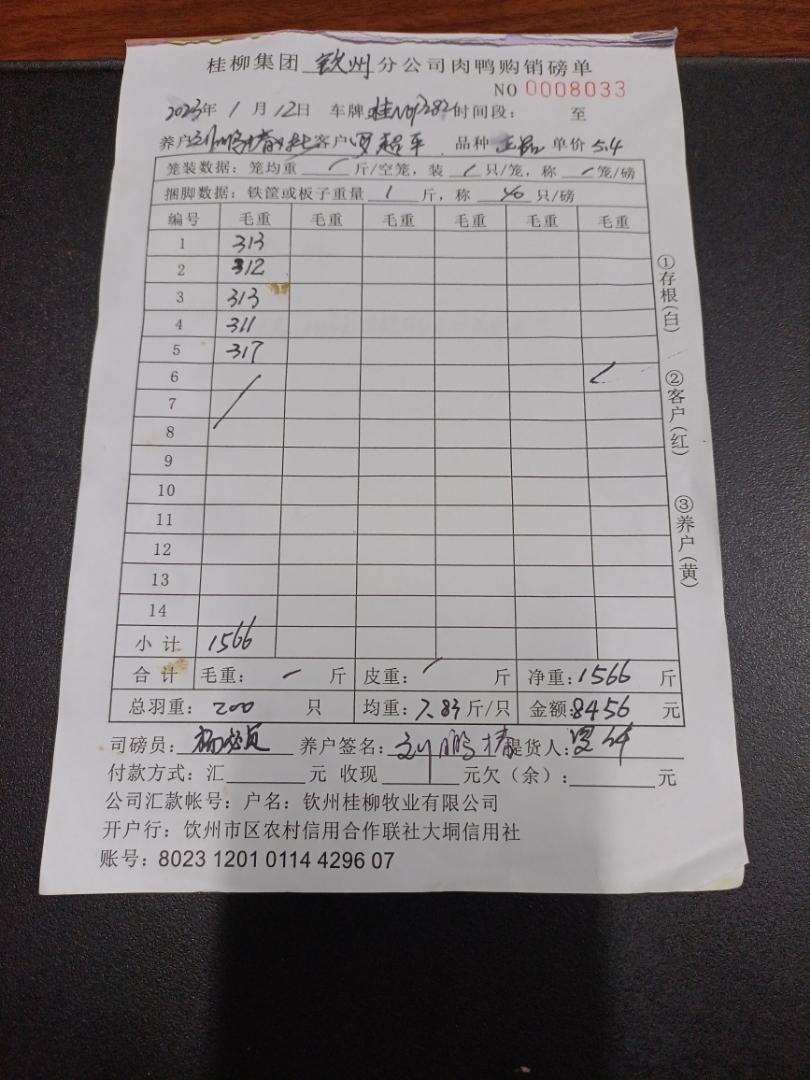 桂柳集团 钦州 分公司肉鸭购销磅单
NO 0008033
2023年 1 月 12日 车牌: 时间段: 至
养户 客户 品种 正品 单价 5.4
笼装数据: 笼均重 / 斤/空笼, 装 / 只/笼, 称 / 笼/磅
捆脚数据: 铁筐或板子重量 1 斤, 称 40 只/磅
编号 毛重 毛重 毛重 毛重 毛重 毛重
1 313
2 312
3 313
4 311
5 317
6
7
8
9
10
11
12
13
14
小 计 1566
合 计 毛重: 斤 皮重: 斤 净重: 1566 斤
总羽重: 200 只 均重: 7.83 斤/只 金额: 8456 元
司磅员: 养户签名: 刘鹏椿 提货人:
付款方式: 汇 元 收现 元欠(余): 元
公司汇款帐号: 户名: 钦州桂柳牧业有限公司
开户行: 钦州市区农村信用合作联社大垌信用社
账号: 8023 1201 0114 4296 07
①存根(白)
②客户(红)
③养户(黄)